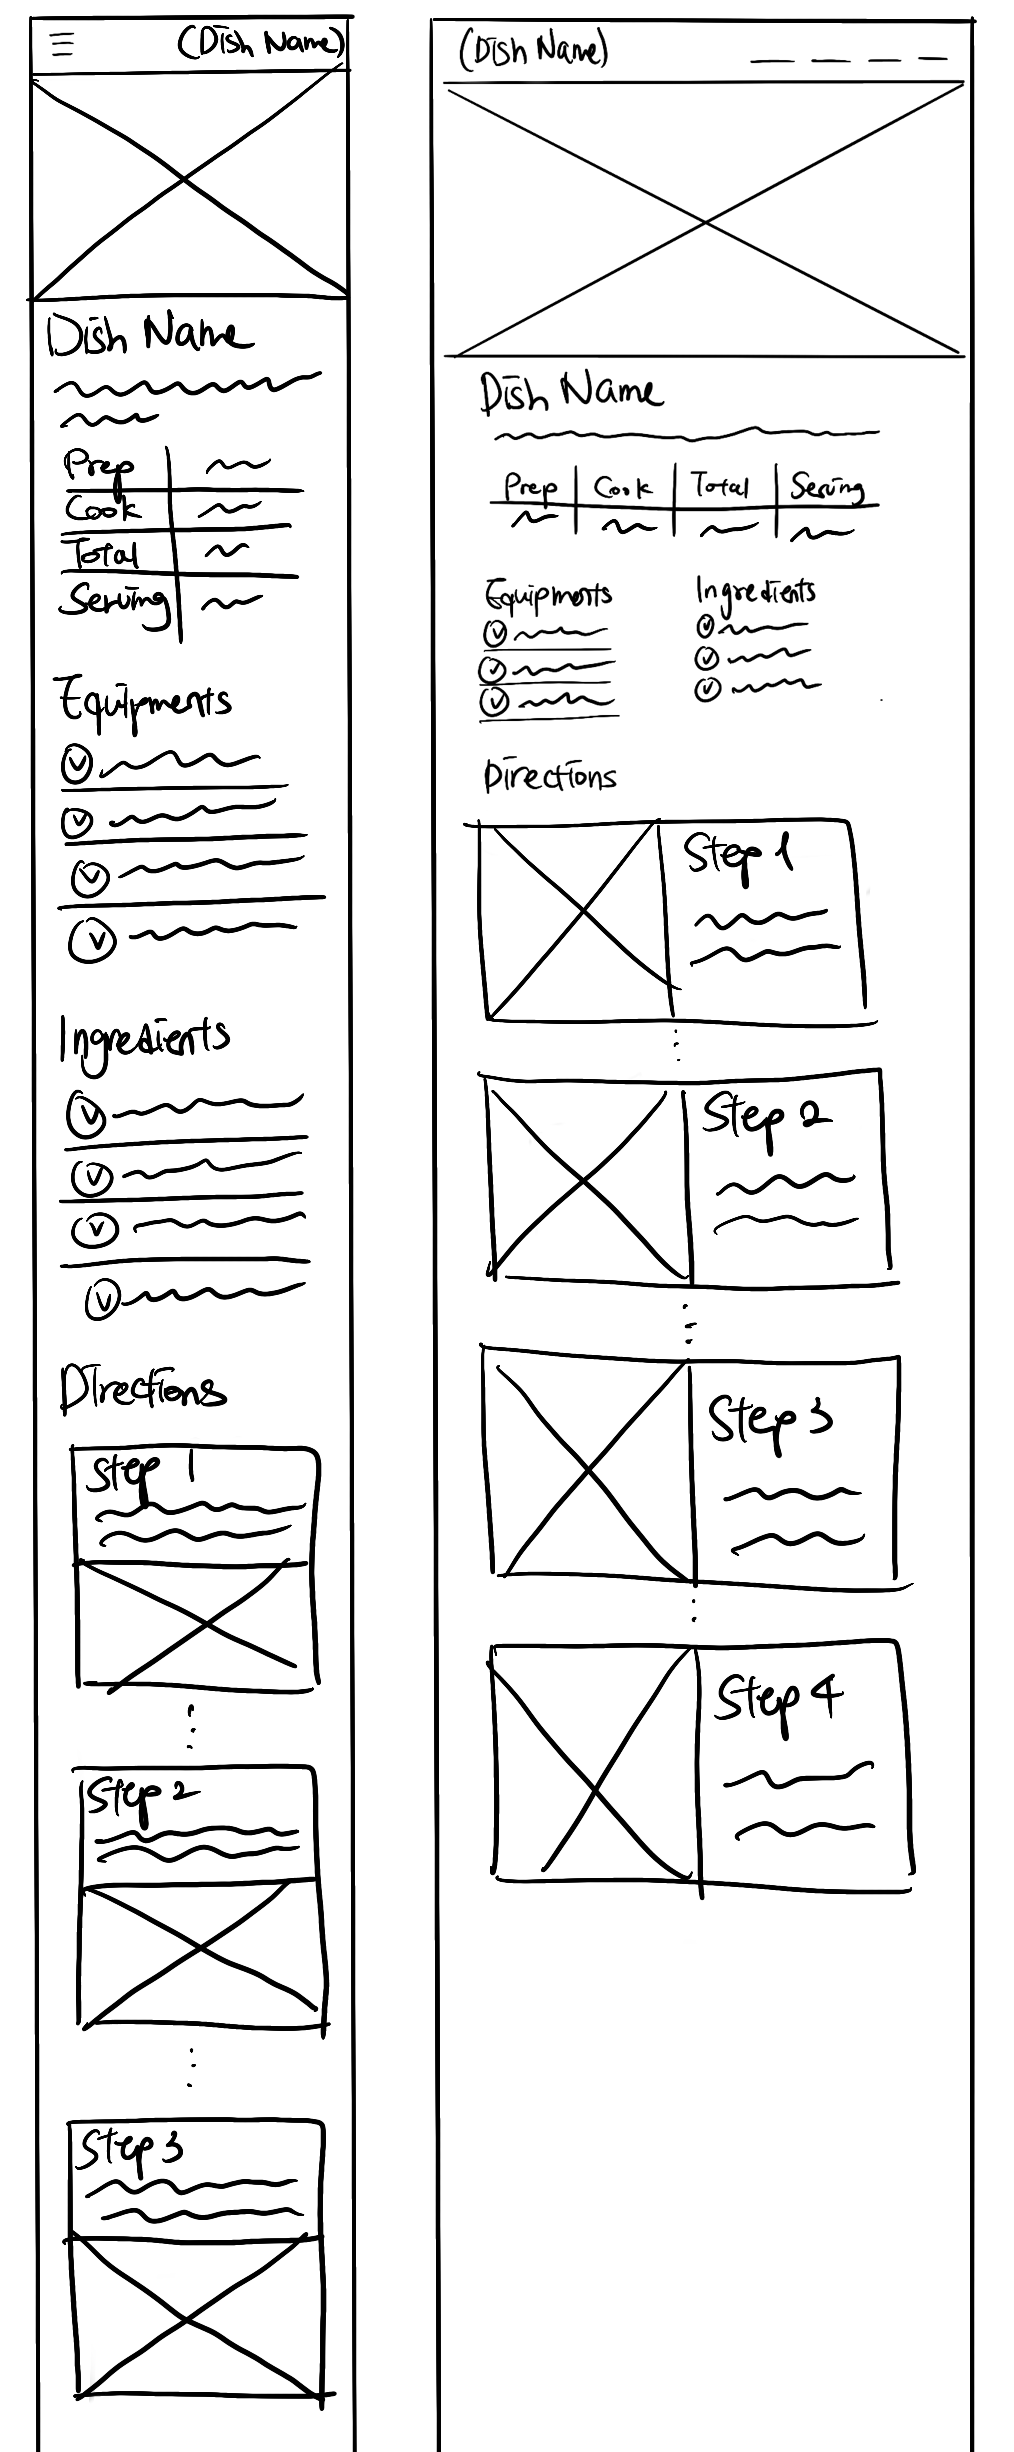 (Dish Name)
Dish Name
Prep
Cook
Total
Serving
Equipments
Ingredients
Directions
Step 1
Step 2
Step 3
(Dish Name)
Dish Name
Prep Cook Total Serving
Equipments
Ingredients
Directions
Step 1
Step 2
Step 3
Step 4